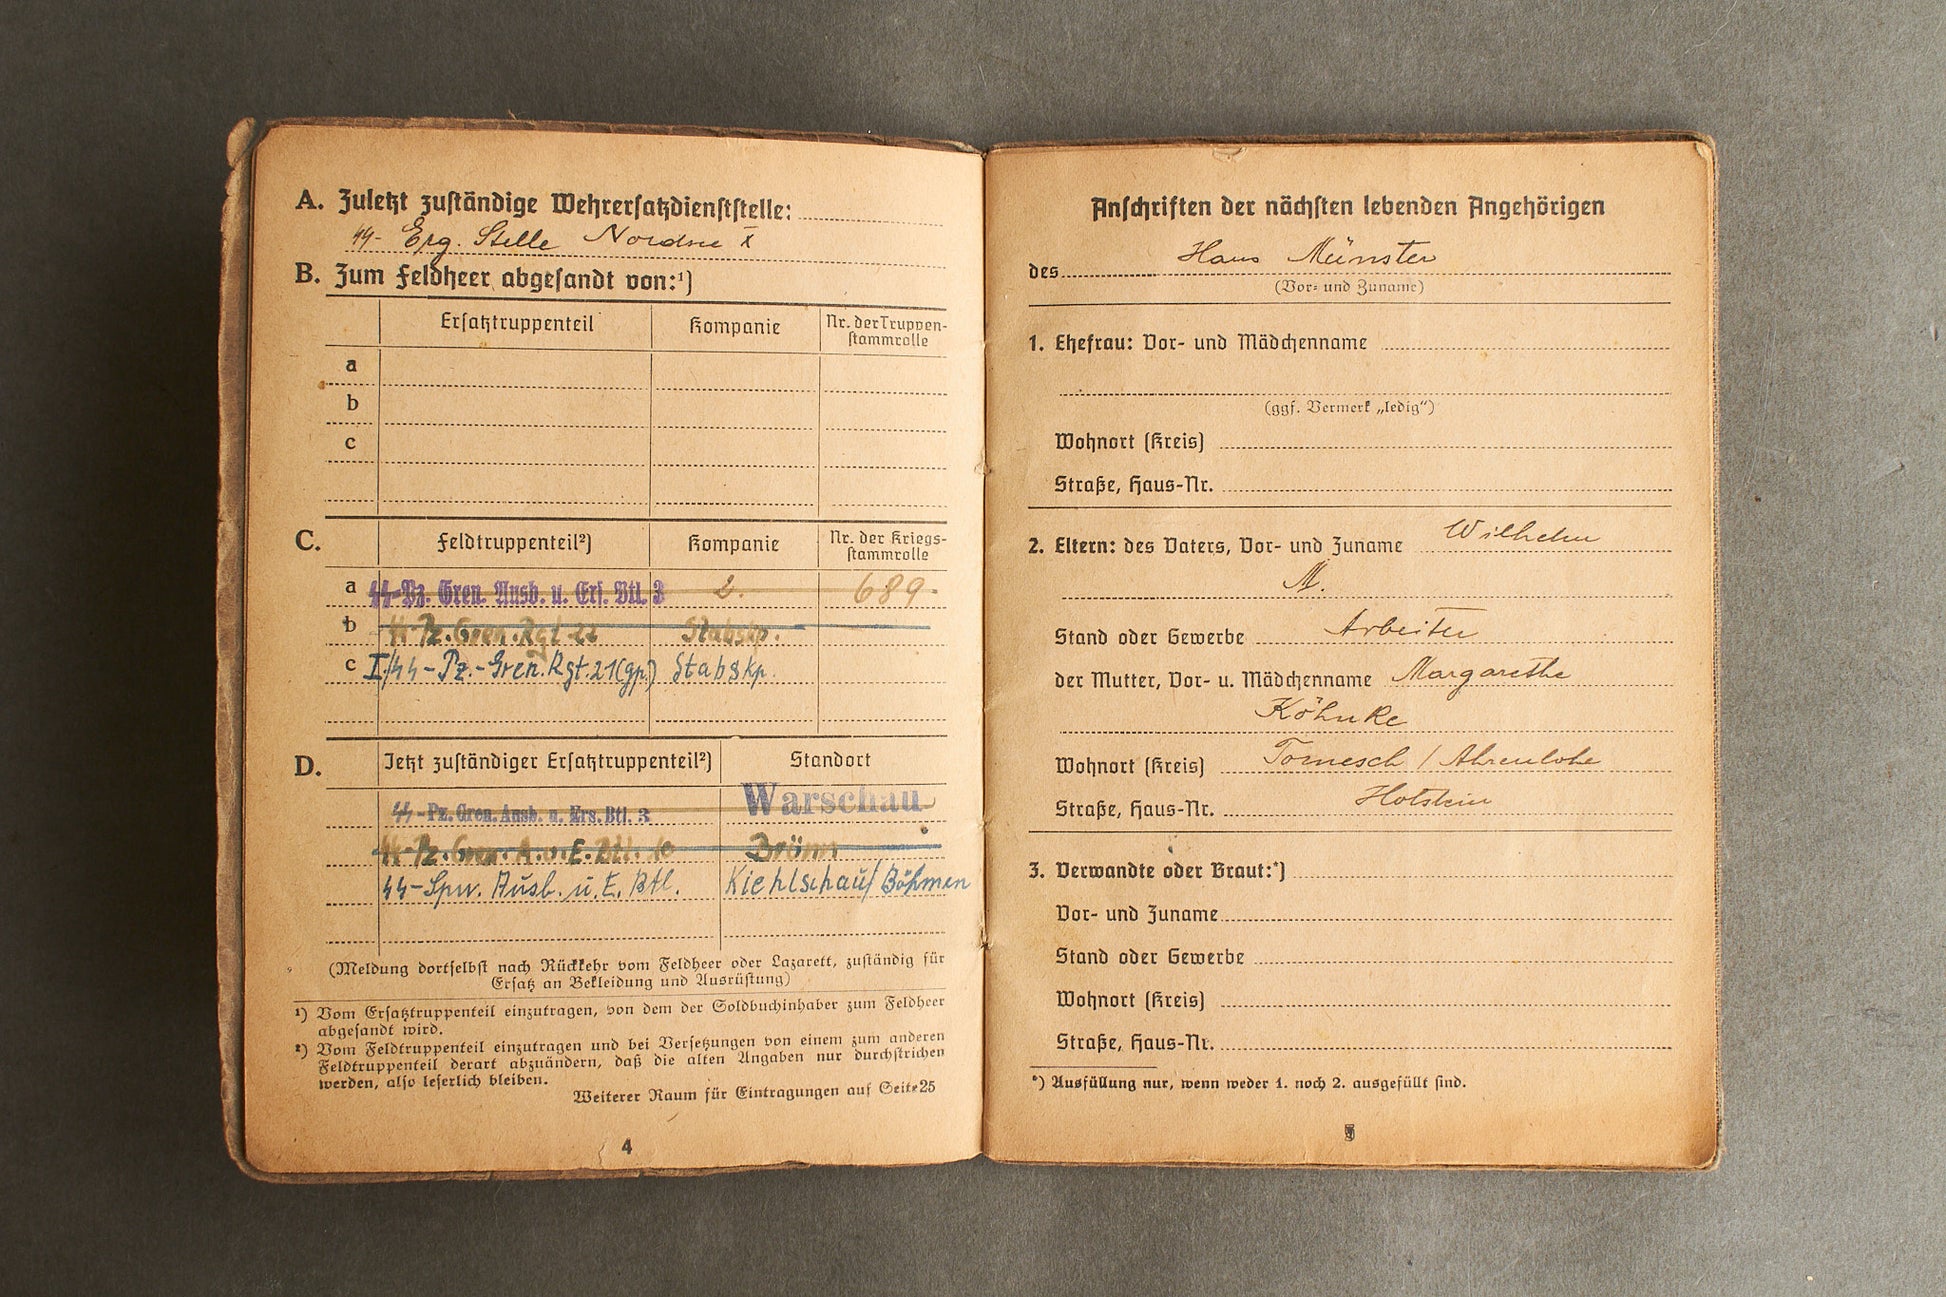 A. Zuletzt zuständige Wehrersatzdienststelle:
SS- Erg. Stelle Nordsee X
B. Zum Feldheer abgesandt von:¹)
Ersatztruppenteil Kompanie Nr. der Truppen-
stammrolle
a
b
c
C. Feldtruppenteil²) Kompanie Nr. der Kriegs-
stammrolle
a SS-Pz. Gren. Ausb. u. Ers. Btl. 3 2. 689.
b SS-Pz. Gren. Rgt. 22 Stabskp.
c I/SS-Pz.-Gren. Rgt. 21(gp) Stabskp.
D. Jetzt zuständiger Ersatztruppenteil²) Standort
SS-Pz. Gren. Ausb. u. Ers. Btl. 3 Warschau
SS-Pz. Gren. A.u.E. Btl. 10 Brünn
SS-Spw. Ausb. u. E. Btl. Kiehlschau/Böhmen
(Meldung dortselbst nach Rückkehr vom Feldheer oder Lazarett, zuständig für
Ersatz an Bekleidung und Ausrüstung)
¹) Vom Ersatztruppenteil einzutragen, von dem der Soldbuchinhaber zum Feldheer
abgesandt wird.
²) Vom Feldtruppenteil einzutragen und bei Versetzungen von einem zum anderen
Feldtruppenteil derart abzuändern, daß die alten Angaben nur durchstrichen
werden, also leserlich bleiben.
Weiterer Raum für Eintragungen auf Seite 25
4
Anschriften der nächsten lebenden Angehörigen
des Hans Münster
(Vor- und Zuname)
1. Ehefrau: Vor- und Mädchenname
(ggf. Vermerk „ledig“)
Wohnort (Kreis)
Straße, Haus-Nr.
2. Eltern: des Vaters, Vor- und Zuname Wilhelm
M.
Stand oder Gewerbe Arbeiter
der Mutter, Vor- u. Mädchenname Margarethe
Köhnke
Wohnort (Kreis) Tornesch / Ahrenlohe
Straße, Haus-Nr. Holstein
3. Verwandte oder Braut:*)
Vor- und Zuname
Stand oder Gewerbe
Wohnort (Kreis)
Straße, Haus-Nr.
*) Ausfüllung nur, wenn weder 1. noch 2. ausgefüllt sind.
5